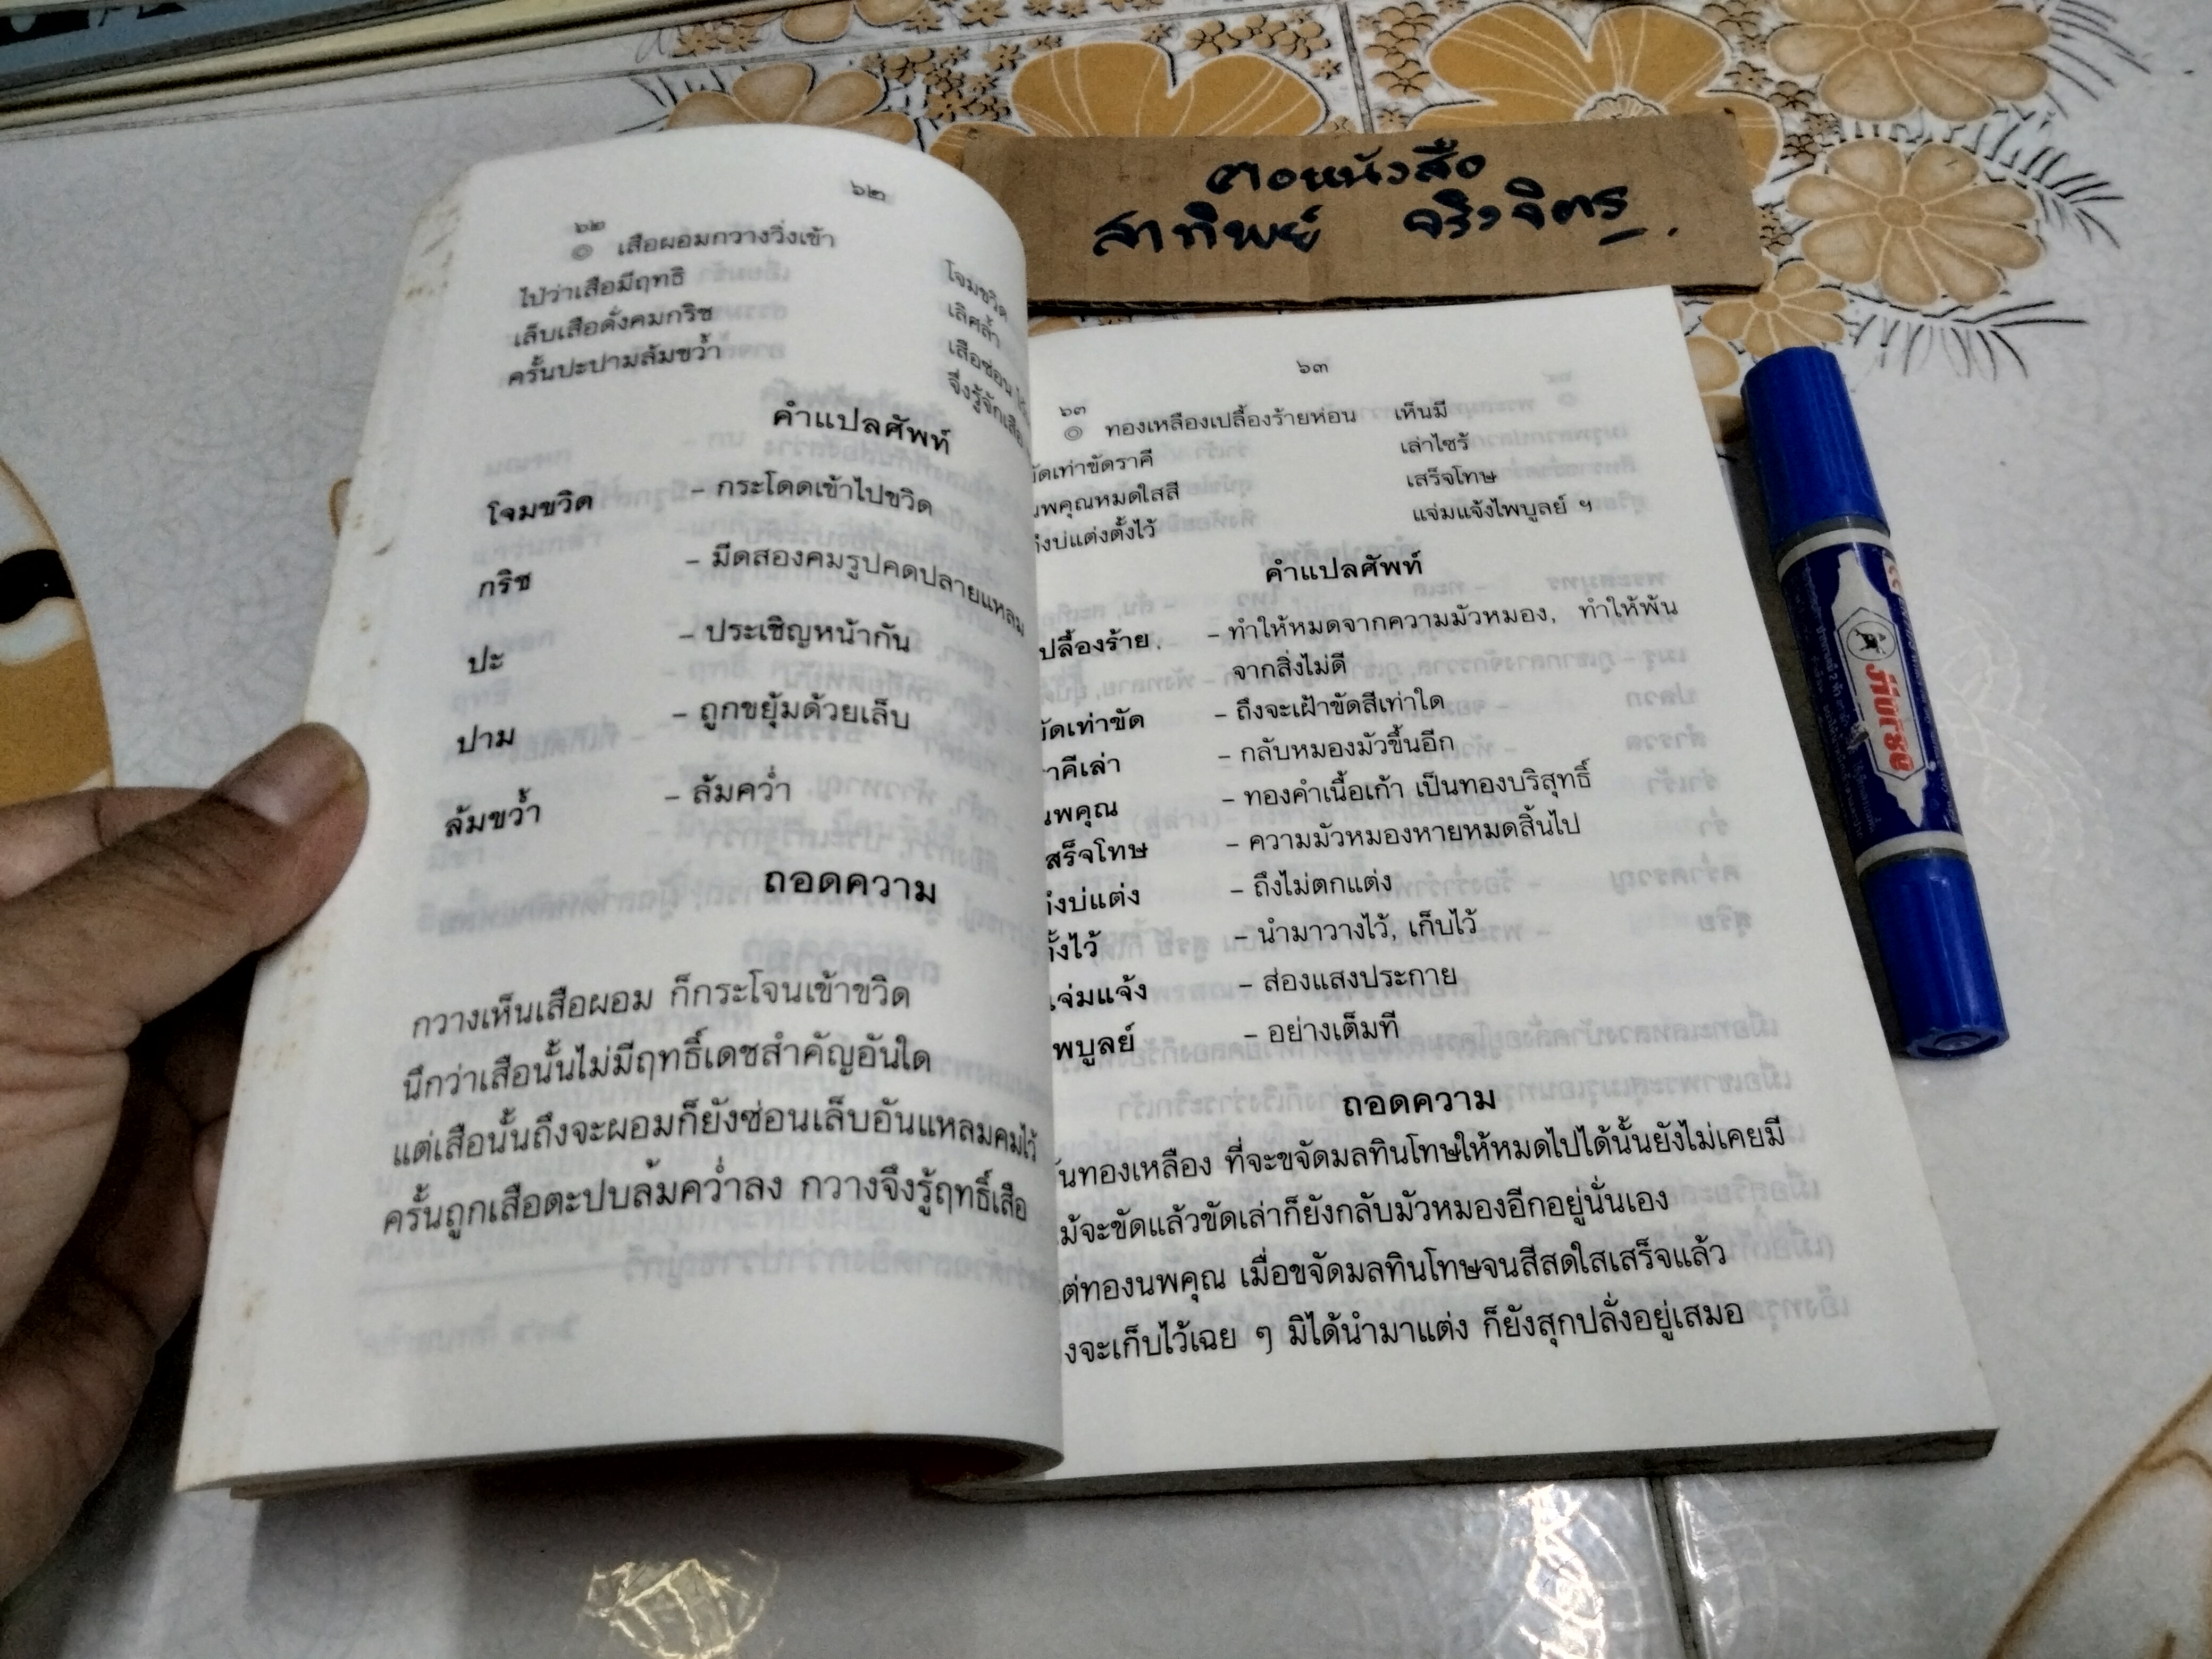 คอหนังสือ
สาทิพย์ จริงจิตร
๖๒
๖๒
๏ เสือผอมกวางวิ่งเข้า โจมขวิด
ไป่ว่าเสือมีฤทธิ เลิศล้ำ
เล็บเสือดั่งคมกริช เสือซ่อน
ครั้นปะปามล้มขว้ำ จึ่งรู้จักเสือ
คำแปลศัพท์
โจมขวิด – กระโดดเข้าไปขวิด
กริช – มีดสองคมรูปคดปลายแหลม
ปะ – ประเชิญหน้ากัน
ปาม – ถูกขยุ้มด้วยเล็บ
ล้มขว้ำ – ล้มคว่ำ
ถอดความ
กวางเห็นเสือผอม ก็กระโจนเข้าขวิด
นึกว่าเสือนั้นไม่มีฤทธิ์เดชสำคัญอันใด
แต่เสือนั้นถึงจะผอมก็ยังซ่อนเล็บอันแหลมคมไว้
ครั้นถูกเสือตะปบล้มคว่ำลง กวางจึงรู้ฤทธิ์เสือ
๖๓
๖๓
๏ ทองเหลืองเปลื้องร้ายห่อน เห็นมี
ขัดเท่าขัดราคี เล่าไซร้
นพคุณหมดใสสี เสร็จโทษ
ถึงบ่แต่งตั้งไว้ แจ่มแจ้งไพบูลย์ ฯ
คำแปลศัพท์
ปลื้องร้าย – ทำให้หมดจากความมัวหมอง, ทำให้พ้น
จากสิ่งไม่ดี
ขัดเท่าขัด – ถึงจะเฝ้าขัดสีเท่าใด
ราคีเล่า – กลับหมองมัวขึ้นอีก
นพคุณ – ทองคำเนื้อเก้า เป็นทองบริสุทธิ์
สร็จโทษ – ความมัวหมองหายหมดสิ้นไป
ถึงบ่แต่ง – ถึงไม่ตกแต่ง
ตั้งไว้ – นำมาวางไว้, เก็บไว้
แจ่มแจ้ง – ส่องแสงประกาย
พบูลย์ – อย่างเต็มที่
ถอดความ
ทองเหลือง ที่จะขจัดมลทินโทษให้หมดไปได้นั้นยังไม่เคยมี
ม้จะขัดแล้วขัดเล่าก็ยังกลับมัวหมองอีกอยู่นั่นเอง
ต่ทองนพคุณ เมื่อขจัดมลทินโทษจนสีสดใสเสร็จแล้ว
งจะเก็บไว้เฉย ๆ มิได้นำมาแต่ง ก็ยังสุกปลั่งอยู่เสมอ